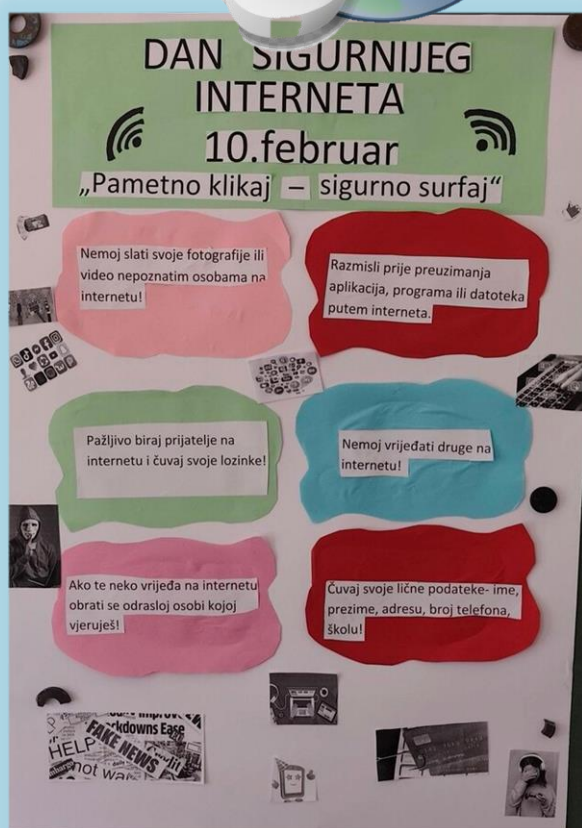 DAN SIGURNIJEG
INTERNETA
10.februar
„Pametno klikaj – sigurno surfaj“
Nemoj slati svoje fotografije ili
video nepoznatim osobama na
internetu!
Razmisli prije preuzimanja
aplikacija, programa ili datoteka
putem interneta.
Pažljivo biraj prijatelje na
internetu i čuvaj svoje lozinke!
Nemoj vrijeđati druge na
internetu!
Ako te neko vrijeđa na internetu
obrati se odrasloj osobi kojoj
vjeruješ!
Čuvaj svoje lične podateke- ime,
prezime, adresu, broj telefona,
školu!
kdowns Ease
HELP
FAKE NEWS
not wa